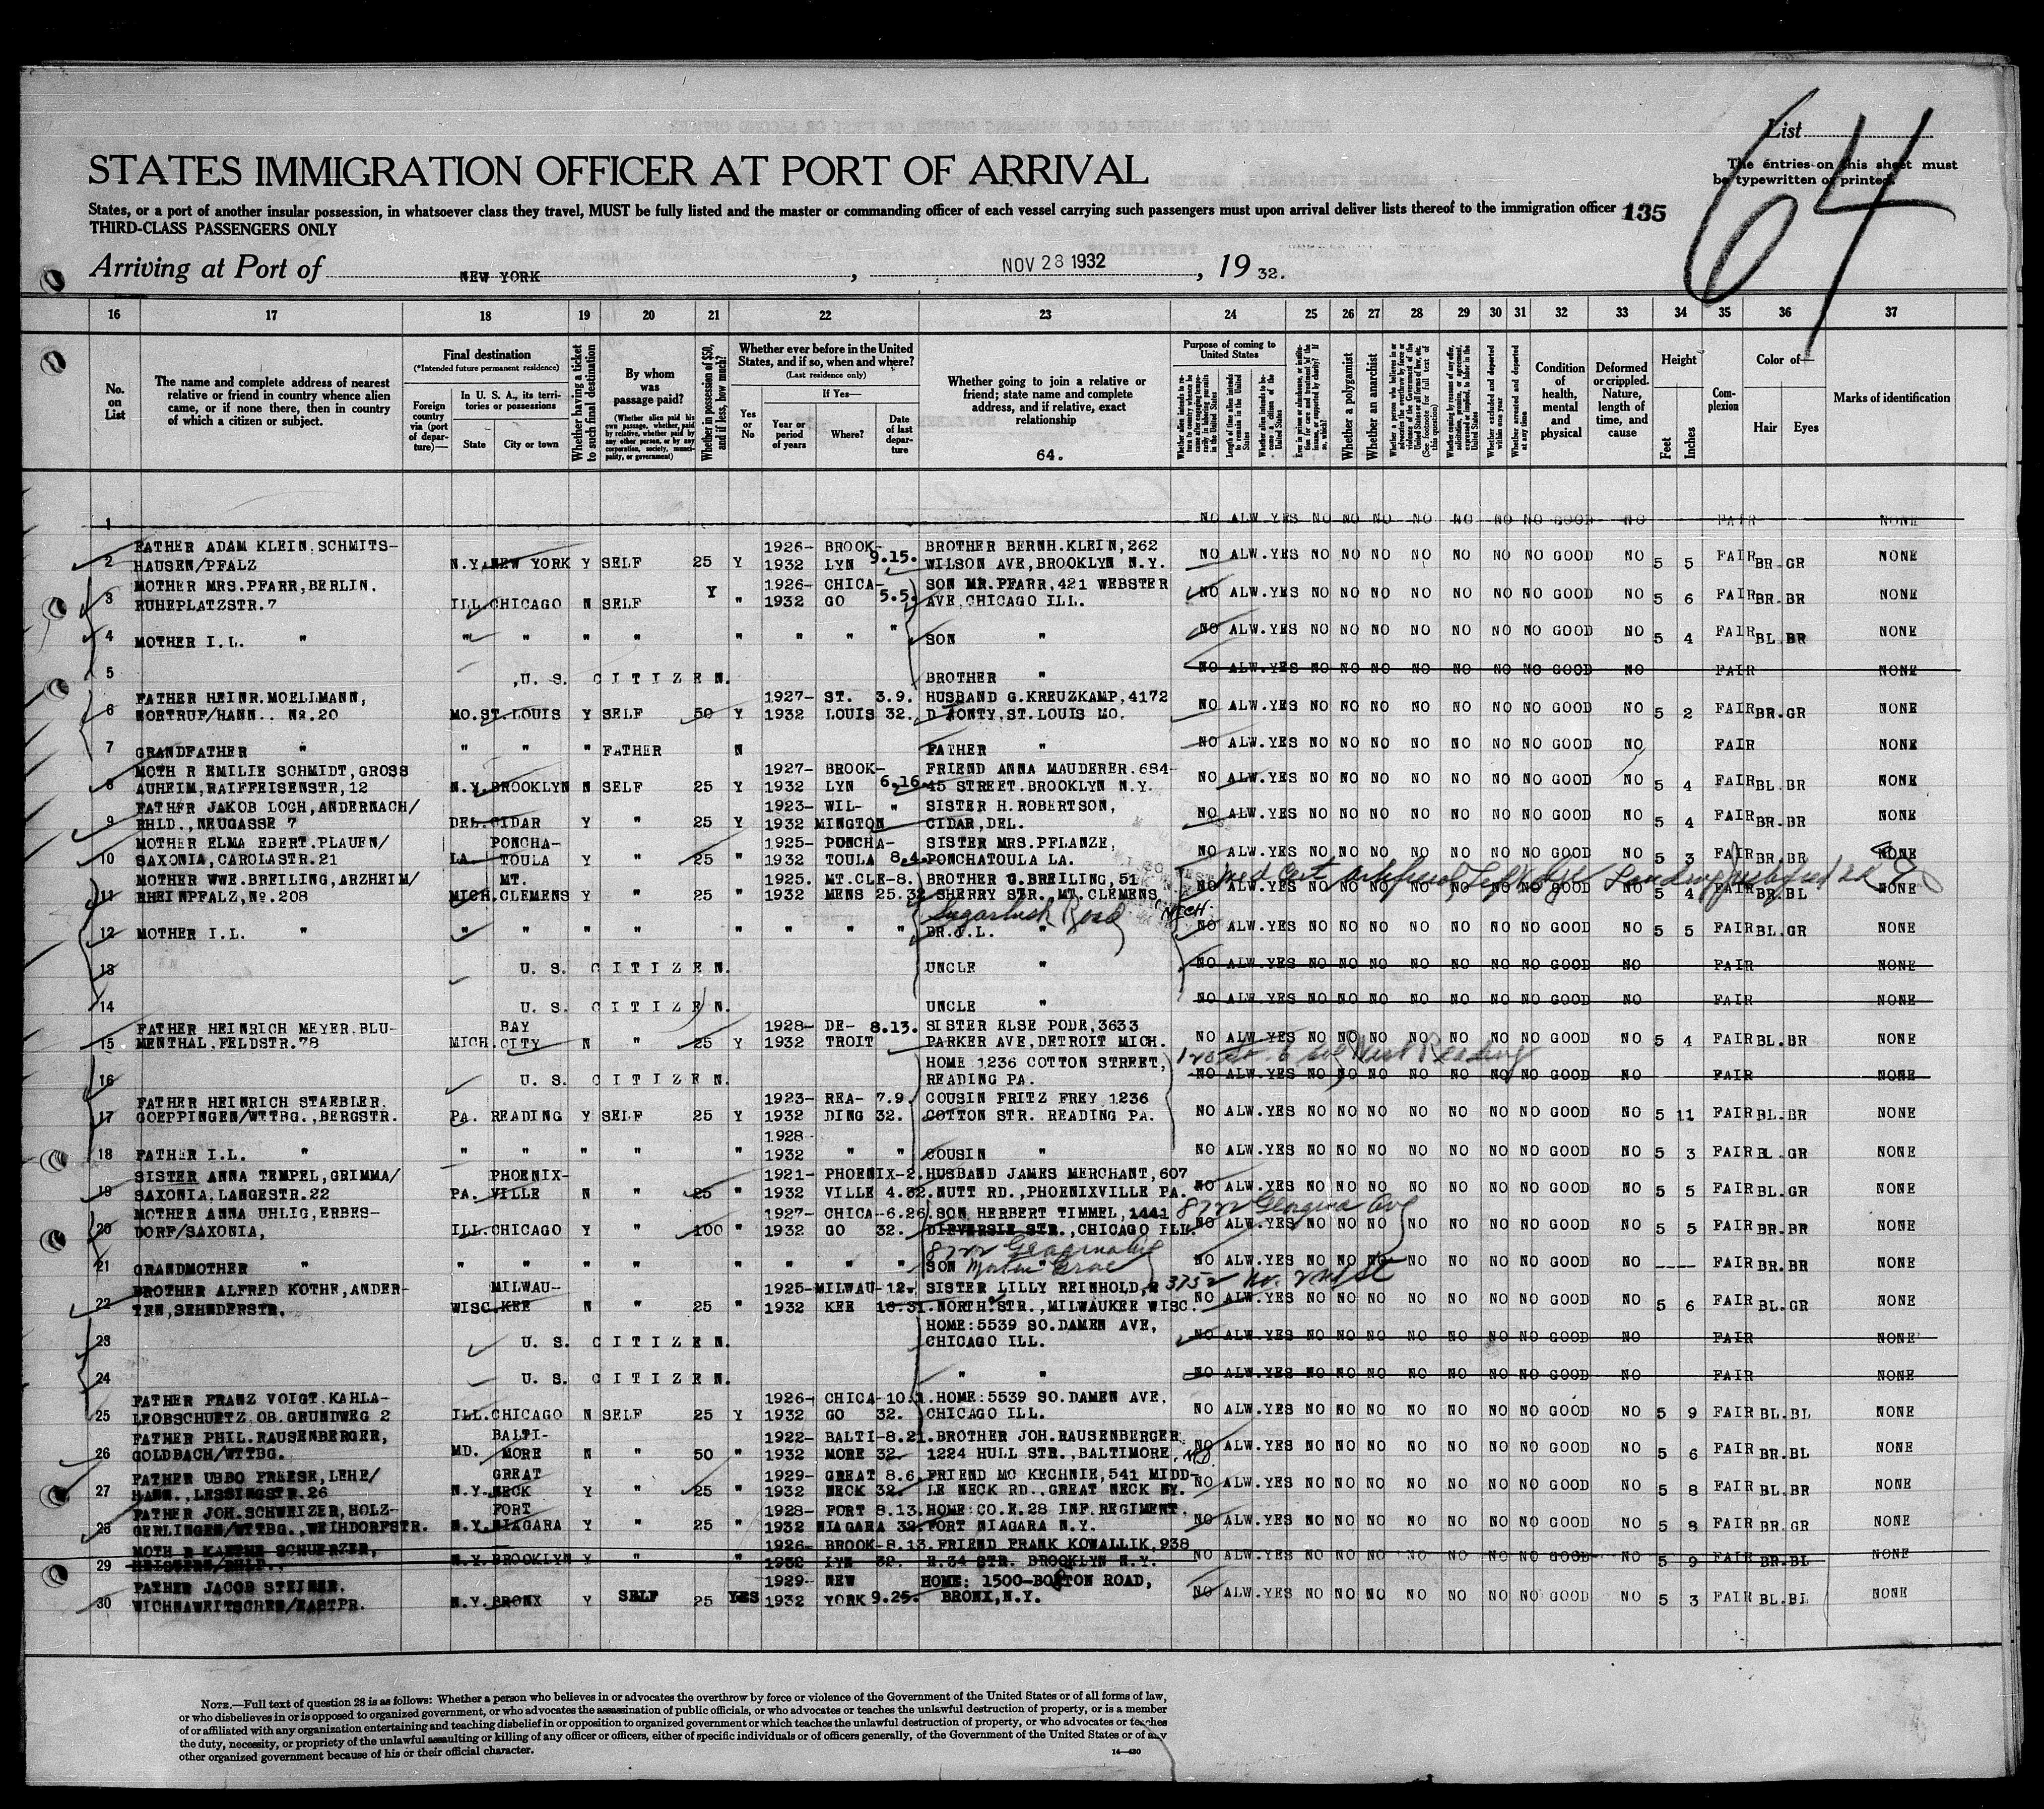 List
The entries on this sheet must
be typewritten or printed.
64
STATES IMMIGRATION OFFICER AT PORT OF ARRIVAL
States, or a port of another insular possession, in whatsoever class they travel, MUST be fully listed and the master or commanding officer of each vessel carrying such passengers must upon arrival deliver lists thereof to the immigration officer 135
THIRD-CLASS PASSENGERS ONLY
Arriving at Port of NEW YORK, NOV 23 1932, 19 32.
16 17 18 19 20 21 22 23 24 25 26 27 28 29 30 31 32 33 34 35 36 37
No. on List
The name and complete address of nearest relative or friend in country whence alien came, or if none there, then in country of which a citizen or subject.
Final destination
(*Intended future permanent residence)
Foreign country via (port of departure)—
In U. S. A., its territories or possessions
State
City or town
Whether having a ticket to such final destination
By whom was passage paid?
(Whether alien paid his own passage, whether paid by relative, whether paid by any other person, or by any corporation, society, municipality, or government)
Whether in possession of $50, and if less, how much?
Whether ever before in the United States, and if so, when and where?
(Last residence only)
Yes or No
If Yes—
Year or period of years
Where?
Date of last departure
Whether going to join a relative or friend; state name and complete address, and if relative, exact relationship
64.
Purpose of coming to United States
Length of time alien intends to remain in the United States
Whether alien intends to become a citizen of the United States
Whether a polygamist
Whether an anarchist
Whether excluded and deported within one year
Whether arrested and deported at any time
Condition of health, mental and physical
Deformed or crippled. Nature, length of time, and cause
Height
Feet
Inches
Complexion
Color of—
Hair
Eyes
Marks of identification
1 NO ALW.YES NO NO NO NO NO NO NO GOOD NO FAIR NONE
FATHER ADAM KLEIN.SCHMITS- 1926- BROOK- BROTHER BERNH.KLEIN,262
2 HAUSEN/PFALZ N.Y. NEW YORK Y SELF 25 Y 1932 LYN 9.15. WILSON AVE,BROOKLYN N.Y. NO ALW.YES NO NO NO NO NO NO NO GOOD NO 5 5 FAIR BR.GR NONE
MOTHER MRS.PFARR,BERLIN. 1926- CHICA- SON MR.PFARR,421 WEBSTER
3 RUHEPLATZSTR.7 ILL.CHICAGO N SELF Y " 1932 GO 5.5. AVE,CHICAGO ILL. NO ALW.YES NO NO NO NO NO NO NO GOOD NO 5 6 FAIR BR.BR NONE
4 MOTHER I.L. " " " " " " " " " SON " NO ALW.YES NO NO NO NO NO NO NO GOOD NO 5 4 FAIR BL.BR NONE
5 U. S. CITIZEN. BROTHER " NO ALW.YES NO NO NO NO NO NO NO GOOD NO FAIR NONE
FATHER HEINR.MOELLMANN, 1927- ST. 3.9. HUSBAND G.KREUZKAMP,4172
6 NORTRUP/HANN.. No.20 MO.ST.LOUIS Y SELF 50 Y 1932 LOUIS 32. ST.LOUIS MO. NO ALW.YES NO NO NO NO NO NO NO GOOD NO 5 2 FAIR BR.GR NONE
7 GRANDFATHER " " " " FATHER N FATHER " NO ALW.YES NO NO NO NO NO NO NO GOOD NO FAIR NONE
MOTH R EMILIE SCHMIDT,GROSS 1927- BROOK- FRIEND ANNA MAUDERER.684-
8 AUHEIM,RAIFFEISENSTR,12 N.Y.BROOKLYN N SELF 25 Y 1932 LYN 6.16. 45 STREET.BROOKLYN N.Y. NO ALW.YES NO NO NO NO NO NO NO GOOD NO 5 4 FAIR BL.BR NONE
FATHER JAKOB LOCH,ANDERNACH/ 1923- WIL- " SISTER H.ROBERTSON,
9 RHLD.,NEUGASSE 7 DEL.CIDAR Y " 25 Y 1932 MINGTON CIDAR,DEL. NO ALW.YES NO NO NO NO NO NO NO GOOD NO 5 4 FAIR BR.BR NONE
MOTHER ELMA EBERT.PLAUEN/ PONCHA- 1925- PONCHA- SISTER MRS.PFLANZE,
10 SAXONIA,CAROLASTR.21 LA. TOULA Y " 25 " 1932 TOULA 8.4. PONCHATOULA LA. NO ALW.YES NO NO NO NO NO NO NO GOOD NO 5 3 FAIR BR.BR NONE
MOTHER WWE.BREILING,ARZHEIM/ MT. 1925. MT.CLE-8. BROTHER G.BREILING,51 med Cert Artificial Left Eye
11 RHEINPFALZ,No.208 MICH.CLEMENS Y " 25 " 1932 MENS 25.32 SHERRY STR.,MT.CLEMENS, MICH. NO ALW.YES NO NO NO NO NO NO NO GOOD NO 5 4 BR.BL NONE
Sugarbush Road
12 MOTHER I.L. " " " " " " " " " " BR.I.L. " NO ALW.YES NO NO NO NO NO NO NO GOOD NO 5 5 FAIR BL.GR NONE
13 U. S. CITIZEN. UNCLE " NO ALW.YES NO NO NO NO NO NO NO GOOD NO FAIR NONE
14 U. S. CITIZEN. UNCLE " NO ALW.YES NO NO NO NO NO NO NO GOOD NO FAIR NONE
FATHER HEINRICH MEYER.BLU- BAY 1928- DE- 8.13. SISTER ELSE PODE,3633
15 MENTHAL.FELDSTR.78 MICH.CITY N " 25 Y 1932 TROIT PARKER AVE,DETROIT MICH. NO ALW.YES NO NO NO NO NO NO NO GOOD NO 5 4 FAIR BL.BR NONE
HOME 1236 COTTON STREET, West Reading
16 U. S. CITIZEN. READING PA. NO ALW.YES NO NO NO NO NO NO NO GOOD NO FAIR NONE
FATHER HEINRICH STAEBLER. 1923- REA- 7.9. COUSIN FRITZ FREY 1236
17 GOEPPINGEN/WTTBG.,BERGSTR. PA. READING Y SELF 25 Y 1932 DING 32. COTTON STR. READING PA. NO ALW.YES NO NO NO NO NO NO NO GOOD NO 5 11 FAIR BL.BR NONE
1928
18 FATHER I.L. " " " " " " " 1932 " " COUSIN " NO ALW.YES NO NO NO NO NO NO NO GOOD NO 5 3 FAIR BL.GR NONE
SISTER ANNA TEMPEL,GRIMMA/ PHOENIX- 1921- PHOENIX-2. HUSBAND JAMES MERCHANT,607
19 SAXONIA,LANGESTR.22 PA. VILLE N " 25 " 1932 VILLE 4.32. NUTT RD.,PHOENIXVILLE PA. NO ALW.YES NO NO NO NO NO NO NO GOOD NO 5 5 FAIR BL.GR NONE
MOTHER ANNA UHLIG,ERBES- 1927- CHICA-6.26. SON HERBERT TIMMEL,1441 8722 Georgina Ave
20 DORF/SAXONIA, ILL.CHICAGO Y " 100 " 1932 GO 32. DIEVERSIE STR.,CHICAGO ILL. NO ALW.YES NO NO NO NO NO NO NO GOOD NO 5 5 FAIR BR.BR NONE
8722 Georgina Ave
21 GRANDMOTHER " " " " " " " " " " SON " Morton Grove NO ALW.YES NO NO NO NO NO NO NO GOOD NO ---- FAIR BR.BR NONE
BROTHER ALFRED KOTHE,ANDER- MILWAU- 1925-MILWAU-12. SISTER LILLY REINHOLD, 3752 No. 2nd St
22 TEN,SEHNDERSTR. WISC.KEE N " 25 " 1932 KEE 16.31. NORTH.STR.,MILWAUKEE WISC. NO ALW.YES NO NO NO NO NO NO NO GOOD NO 5 6 FAIR BL.GR NONE
HOME:5539 SO.DAMEN AVE,
23 U. S. CITIZEN. CHICAGO ILL. NO ALW.YES NO NO NO NO NO NO NO GOOD NO FAIR NONE
24 U. S. CITIZEN. " " NO ALW.YES NO NO NO NO NO NO NO GOOD NO FAIR NONE
FATHER FRANZ VOIGT.KAHLA- 1926- CHICA-10.1. HOME:5539 SO.DAMEN AVE,
25 LEOBSCHUETZ.OB.GRUNDWEG 2 ILL.CHICAGO N SELF 25 Y 1932 GO 32. CHICAGO ILL. NO ALW.YES NO NO NO NO NO NO NO GOOD NO 5 9 FAIR BL.BL NONE
FATHER PHIL.RAUSENBERGER, BALTI- 1922- BALTI-8.21. BROTHER JOH.RAUSENBERGER
26 GOLDBACH/WTTBG. MD. MORE N " 50 " 1932 MORE 32 1224 HULL STR.,BALTIMORE, MD. NO ALW.YES NO NO NO NO NO NO NO GOOD NO 5 6 FAIR BR.BL NONE
FATHER UBBO FREESE,LEHE/ GREAT 1929- GREAT 8.6. FRIEND MC KECHNIE,541 MIDD-
27 HANN.,LESSINGSTR.26 N.Y.NECK Y " 25 " 1932 NECK 32. LE NECK RD.,GREAT NECK NY. NO ALW.YES NO NO NO NO NO NO NO GOOD NO 5 8 FAIR BL.BR NONE
FATHER JOH.SCHWEIZER,HOLZ- FORT 1928- FORT 8.13. HOME:CO.K.28 INF.REGIMENT,
28 GERLINGEN/WTTBG.,WEIHDORFSTR. N.Y.NIAGARA Y " 25 " 1932 NIAGARA 32. FORT NIAGARA N.Y. NO ALW.YES NO NO NO NO NO NO NO GOOD NO 5 8 FAIR BR.GR NONE
MOTH R KAETHE SCHUERZER, 1926- BROOK-8.13. FRIEND FRANK KOWALLIK,938
29 N.Y.BROOKLYN Y " " 1932 LYN 32. E.34 STR. BROOKLYN N.Y. NO ALW.YES NO NO NO NO NO NO NO GOOD NO 5 9 FAIR BR.BL NONE
FATHER JACOB STEINER. 1929- NEW HOME: 1500-BOSTON ROAD,
30 WICHNAWEITSCHEN/EASTPR. N.Y.BRONX Y SELF 25 YES 1932 YORK 9.25. BRONX,N.Y. NO ALW.YES NO NO NO NO NO NO NO GOOD NO 5 3 FAIR BL.BL NONE
NOTE.—Full text of question 28 is as follows: Whether a person who believes in or advocates the overthrow by force or violence of the Government of the United States or of all forms of law,
or who disbelieves in or is opposed to organized government, or who advocates the assassination of public officials, or who advocates or teaches the unlawful destruction of property, or is a member
of or affiliated with any organization entertaining and teaching disbelief in or opposition to organized government or which teaches the unlawful destruction of property, or who advocates or teaches
the duty, necessity, or propriety of the unlawful assaulting or killing of any officer or officers, either of specific individuals or of officers generally, of the Government of the United States or of any
other organized government because of his or their official character.
14—430